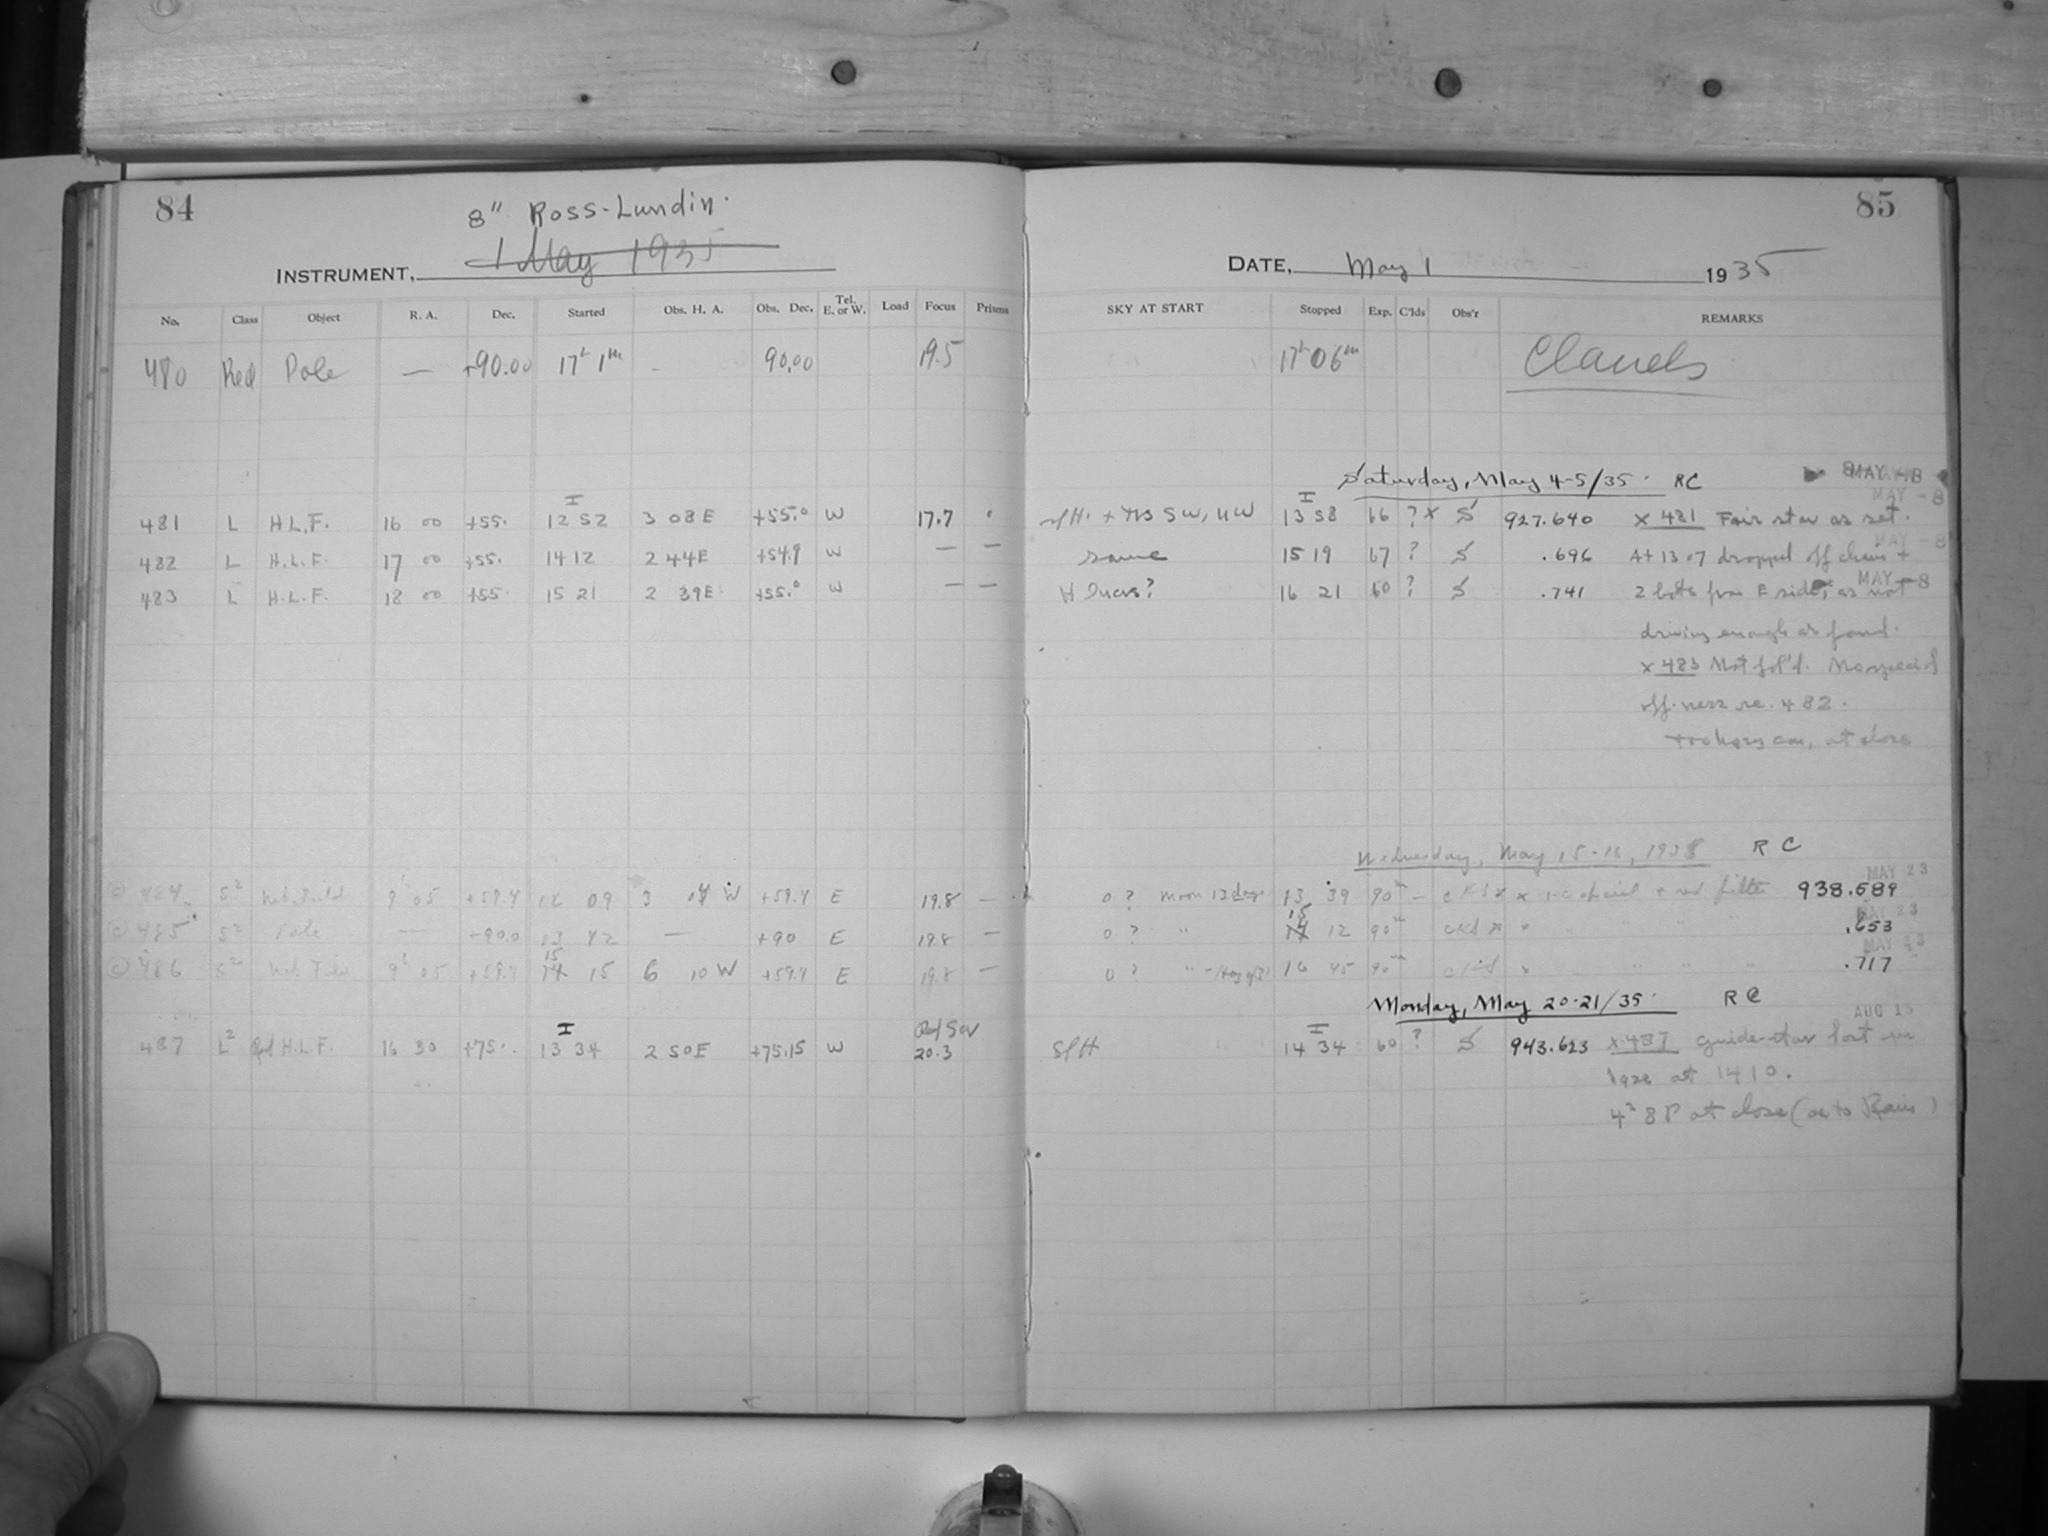 84
8" Ross-Lundin.
INSTRUMENT, 1 May 1935
No. Class Object R. A. Dec. Started Obs. H. A. Obs. Dec. Tel. E. or W. Load Focus Prisms
480 Red Pole — +90.00 17h 1m - 90.00 19.5
481 L H.L.F. 16 00 +55. I 12 52 3 08 E +55.0 W 17.7
482 L H.L.F. 17 00 +55. 14 12 2 44 E +54.9 W — —
483 L H.L.F. 18 00 +55. 15 21 2 39 E +55.0 W — —
484 S2 Neb. Field 9h 05 +59.4 12 09 3 04 W +59.4 E 19.8 —
485 S2 Pole — +90.0 13 42 — +90 E 19.8 —
486 S2 Neb. 9h 05 +59.4 15 14 15 6 10 W +59.4 E 19.8 —
487 L2 H.L.F. 16 30 +75. I 13 34 2 50 E +75.15 W 20.3
85
DATE, May 1 1935
SKY AT START Stopped Exp. C'lds Obs'r REMARKS
17h 06m Clouds
Saturday, May 4-5/35. RC MAY -8
MAY -8
SW, NW I 13 58 66 ? x S 927.640 x 481 Fair star as set.
MAY -8
same 15 19 67 ? S .696 At 13 07 dropped off
MAY -8
H 16 21 60 ? S .741 2 from E side, as not
driving enough as found.
x 483 Not fol'd. No special
off-ness re. 482.
at close
Wednesday, May 15-16, 1935 RC
MAY 23
0 ? Moon 13 days 13 39 90m — CKS x x 1-C special + red filter 938.589
MAY 23
0 ? " 15 14 12 90m CKS x x " " .653
MAY 23
0 ? " 16 45 90m CKS x " " " .717
Monday, May 20-21/35. RC
AUG 15
SPH I 14 34 60 ? S 943.623 x 487 guide-star lost in
haze at 1410.
at close (as to Rain)